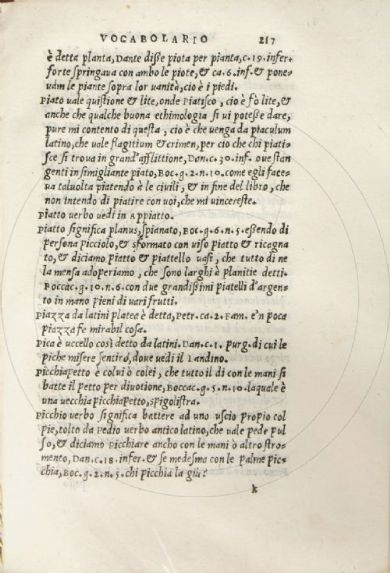 VOCABOLARIO 217
è detta planta, Dante disse piota per pianta, c. 19. infer.
forte springaua con ambo le piote, & ca. 6. inf. & pone-
uam le piante sopra lor uanità, cio è i piedi.
PIATO uale quistione & lite, onde Piatisco, cio è fò lite, &
anche che qualche buona ethimologia si ui potesse dare,
pure mi contento di questa, cio è che uenga da piaculum
latino, che uale flagitium & crimen, per cio che chi piati-
sce si troua in grand'afflittione, Dan. c. 30. inf. oue stan
genti in simigliante piato, BOC. g. 2. n. 10. come egli face-
ua taluolta piatendo è le ciuili, & in fine del libro, che
non intendo di piatire con uoi, che mi uincereste.
PIATTO uerbo uedi in Appiatto.
PIATTO significa planus, spianato, BOC. g. 6. n. 5. essendo di
persona picciolo, & sformato con uiso piatto & ricagna
to, & diciamo piatto & piattello uasi, che tutto di ne
la mensa adoperiamo, che sono larghi è planitie detti.
Boccac. g. 10. n. 6. con due grandissimi piatelli d'argen-
to in mano pieni di uari frutti.
PIAZZA da latini platea è detta, Petr. ca. 2. Fam. e'n poca
piazza fe mirabil cosa.
PICA è uccello così detto da latini. DAN. c. 1. purg. di cui le
piche misere sentirò, doue uedi il Landino.
PICCHIAPETTO è colui ò colei, che tutto il dì con le mani si
batte il petto per diuotione, BOCCAC. g. 5. n. 10. laquale è
una uecchia picchiapetto, spigolistra.
PICCHIO uerbo significa battere ad uno uscio propio col
pie, tolto da Pedio uerbo antico latino, che uale pede pul
so, & diciamo picchiare ancho con le mani ò altro stro-
mento, DAN. c. 18. infer. & se medesmo con le palme pic-
chia, BOC. g. 2. n. 5. chi picchia la giu?
k